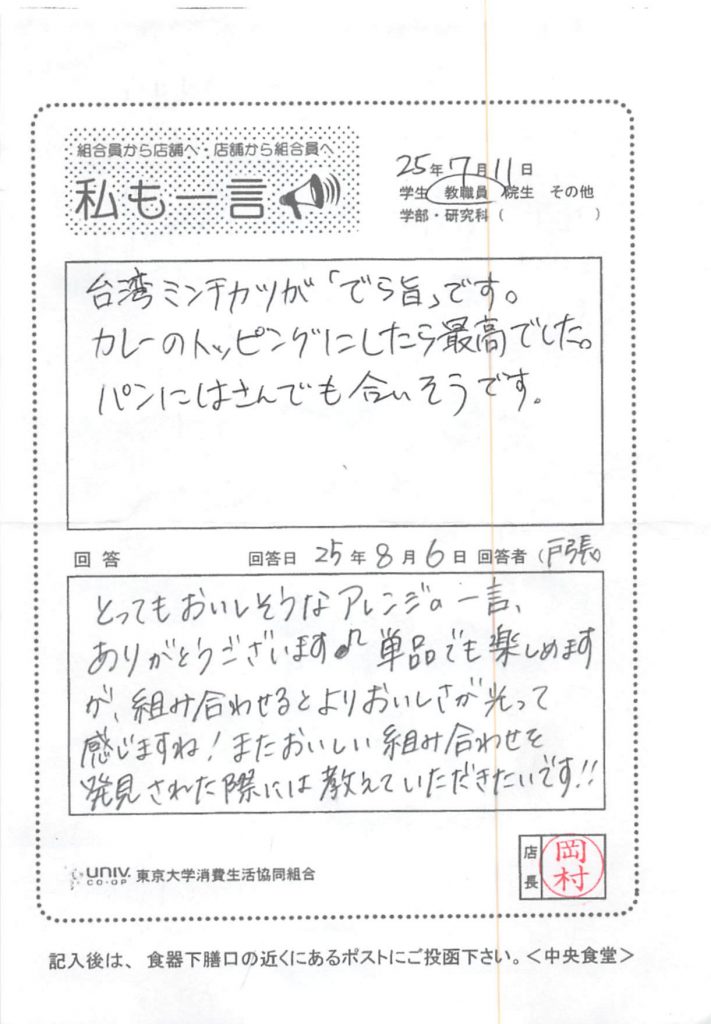 組合員から店舗へ・店舗から組合員へ
私も一言
25年7月11日
学生 教職員 院生 その他
学部・研究科( )
台湾ミンチカツが「でら旨」です。
カレーのトッピングにしたら最高でした。
パンにはさんでも合いそうです。
回答 回答日 25年8月6日 回答者(戸張)
とってもおいしそうなアレンジの一言、
ありがとうございます♪単品でも楽しめます
が、組み合わせるとよりおいしさが光って
感じますね!またおいしい組み合わせを
発見された際には教えていただきたいです!!
UNIV. CO-OP 東京大学消費生活協同組合
店長 岡村
記入後は、食器下膳口の近くにあるポストにご投函下さい。<中央食堂>